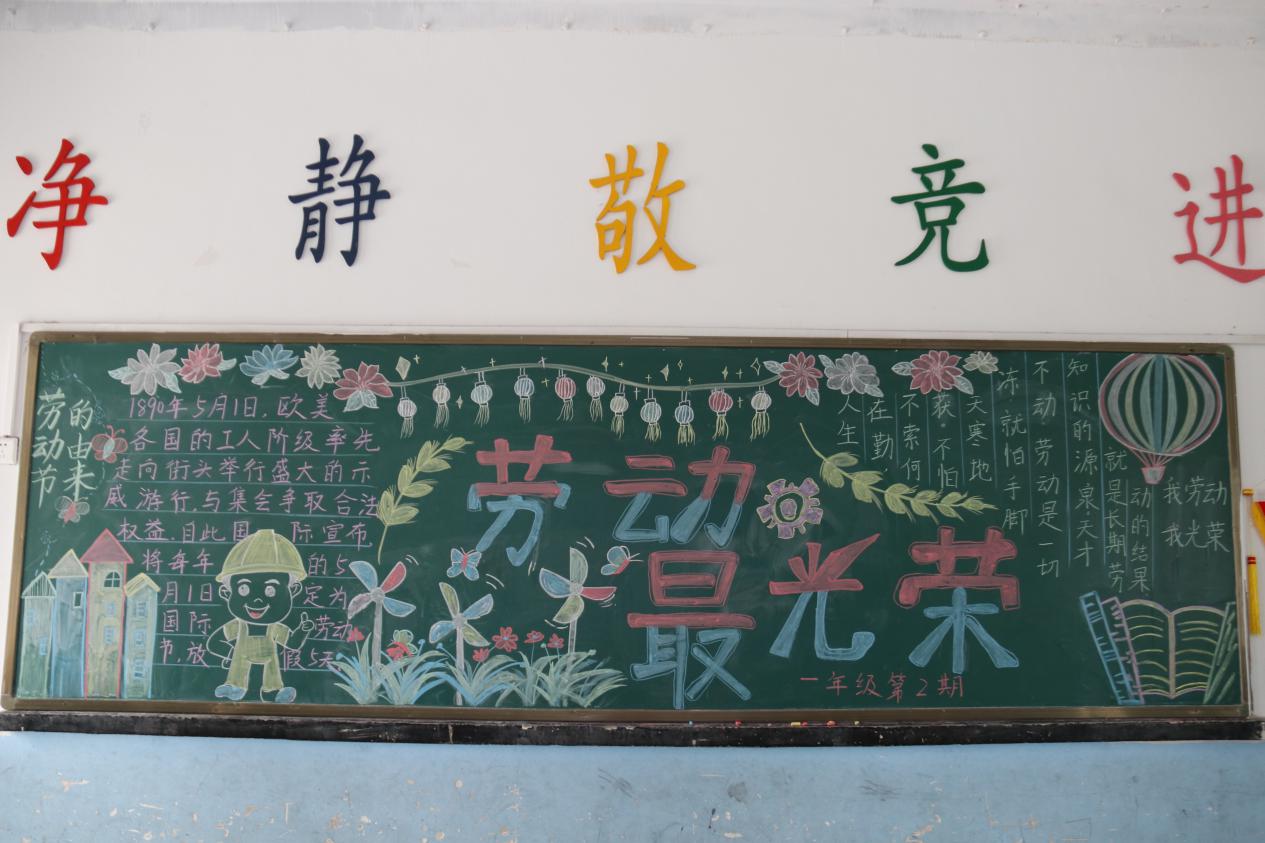 净 静 敬 竞 进
劳动节
的由来
1890年5月1日,欧美
各国的工人阶级率先
走向街头举行盛大的示
威游行,与集会争取合法
权益.自此国际宣布
将每年的5
月1日定为
国际劳动
节,放假5天.
劳动
最光荣
一年级第2期
人生
在勤,
不索何
获.不怕
天寒地
冻就怕手脚
不动劳动是一切
知识的源泉天才
就是长期劳
动的结果
我劳动
我光荣